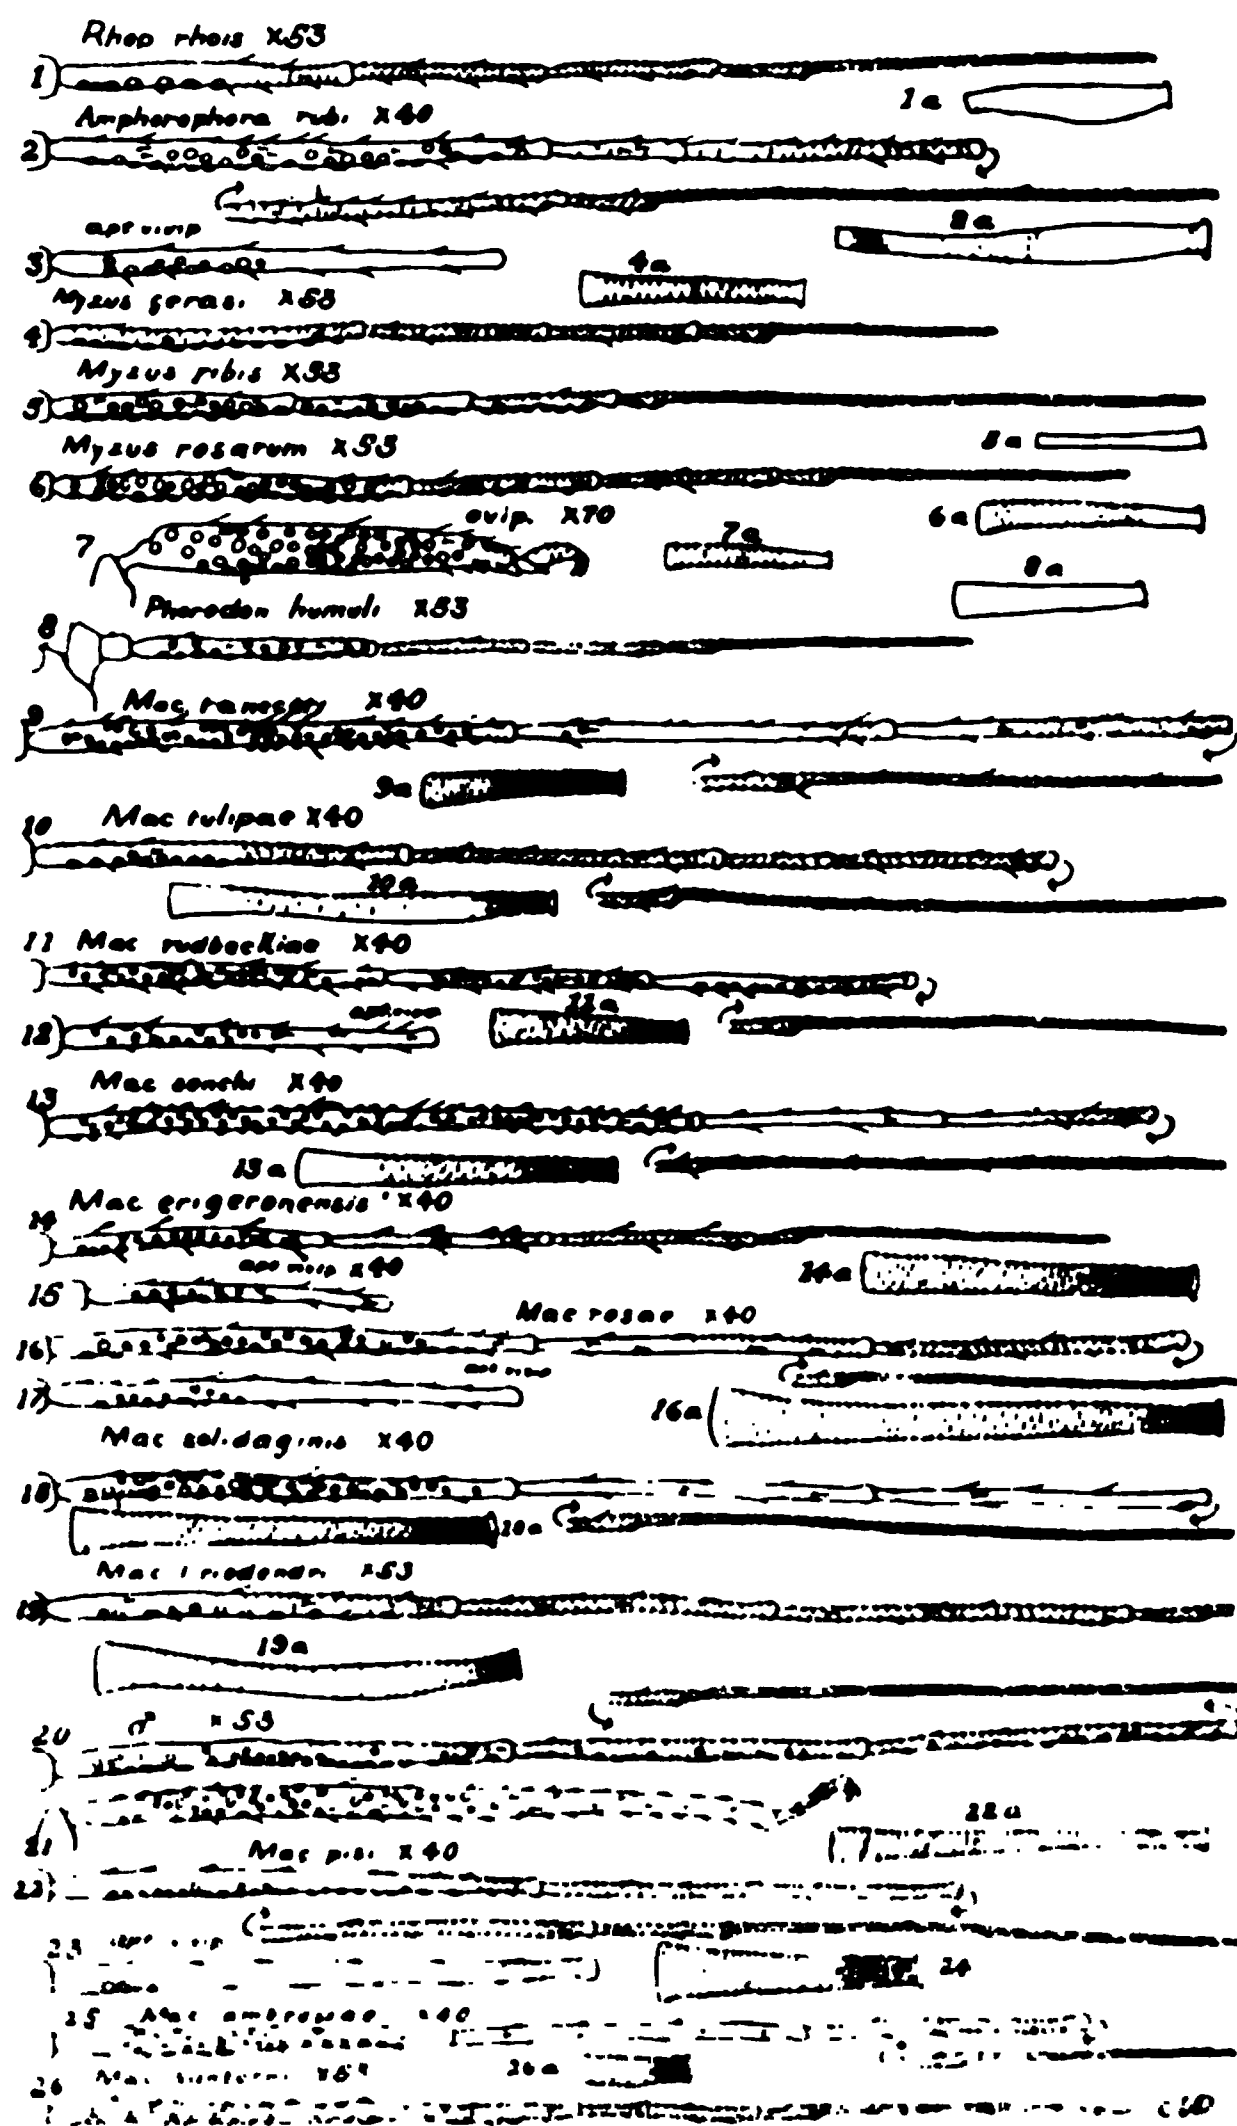 Rhop rhois x53
1
1a
Amphorophora rubi x40
2
2a
apt vivip
3
4a
Myzus cerasi x53
4
Myzus ribis x53
5
5a
Myzus rosarum x53
6
6a
ovip. x70
7
7a
8a
Phorodon humuli x53
8
Mac. x40
9
9a
Mac tulipae x40
10
10a
11 Mac rudbeckiae x40
apt vivip
11a
12
Mac sonchi x40
13
13a
Mac erigeronensis x40
14
14a
apt vivip x40
15
Mac rosae x40
16
apt vivip
17
16a
Mac solidaginis x40
18
18a
Mac liriodendri x53
19
19a
20 ♂ x53
21
22a
Mac pisi x40
22
23 apt vivip
24
25 Mac ambrosiae x40
26a
26 Mac